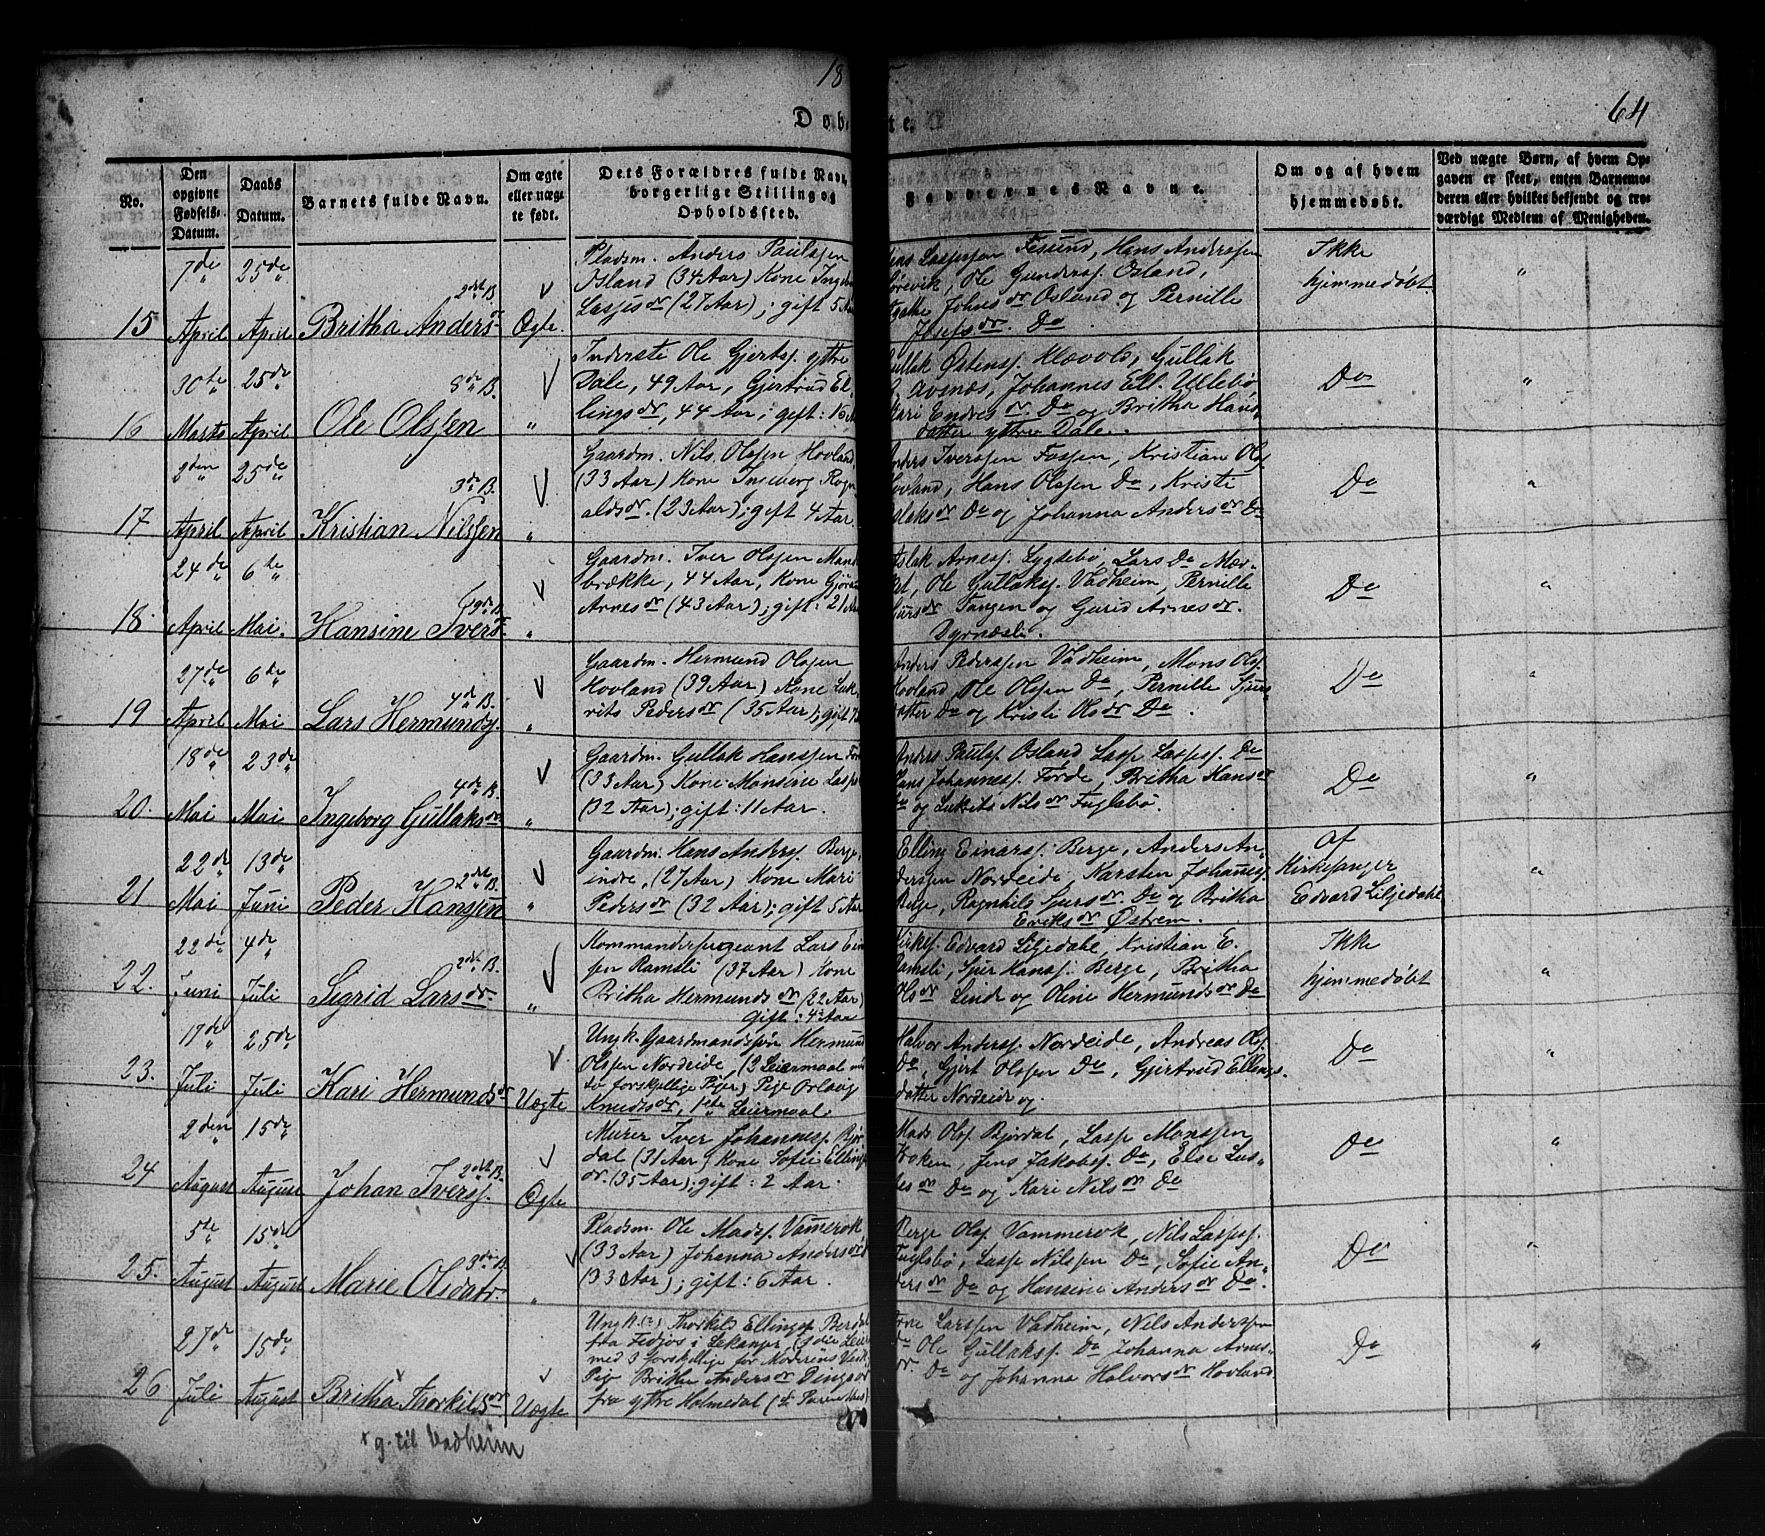 18
64
Døb
te.
No.
Den opgivne Fødsels-Datum.
Daabs Datum.
Barnets fulde Navn.
Om ægte eller uægte født.
Dets Forældres fulde Navn, borgerlige Stilling og Opholdssted.
Faddernes Navne.
Om og af hvem hjemmedøbt.
Ved uægte Børn, af hvem Opgaven er skeet, enten Barnemoderen eller hvilket bekjendt og troværdigt Medlem af Menigheden.
15
7de April
25de April
2det B.
Britha Andersdr
Ægte.
Pladsm. Anders Paulssen
Osland (34 Aar) Kone
(27 Aar); gift 5
Lassessen Hans Anderssen
Ole Osland,
Osland og Pernille
Josefsdr. Do
Ikke
hjemmedøbt
"
16
30te Marts
25de April
8de B.
Ole Olssen
"
Inderste Ole Gjertss. yttre
Dale, 49 Aar, Gjertrud El-
lingsdr, 44 Aar; gift:
Østenss. Klævold, Gullak
Avenæs, Johannes Ell. Ullebø
Kari Endresdr. Do og Britha Hans-
datter yttre Dale.
Do
"
17
2den April
25de April
3die B.
Kristian Nilssen
"
Gaardm. Nils Olssen Hovland,
(33 Aar) Kone Ingeborg Rogn-
aldsdr. (23 Aar); gift 4 Aar.
Anders Iverssen Fossen, Kristian Ols.
Hovland, Hans Olssen Do, Kristi
Do og Johanna Andersdr Do
Do
"
18.
24de April
6te Mai.
9de B.
Hansine Iversdr
"
Gaardm. Iver Olssen
brække, 44 Aar, Kone
Arnesdr (43 Aar); gift: 21
Aslak Arness. Lygtebø, Lars Do
Ole Gullakss. Vadheim, Pernille
Tangen og Gurid Arnesdr.
Dyrnæsli.
Do
"
19
27de April
6te Mai
4de B.
Lars Hermunds.
"
Gaardm. Hermund Olssen
Hovland (39 Aar) Kone Luk-
rits Pedersdr (35 Aar); gift
Anders Pederssen Vadheim, Mons Ols.
Hovland, Ole Olssen Do, Pernille Sjurs-
datter Do og Kristi Olsdr Do
Do
"
20.
18de Mai
23de Mai
4de B.
Ingeborg Gullaksdr
"
Gaardm. Gullak Hanssen
(33 Aar) Kone Monsine
(32 Aar); gift: 11 Aar.
Anders Paulss. Osland, Lasse Lassess. Do
Hans Johanness. Førde, Britha Hansdr
Do og Lukrits Nilsdr Fuglebø.
Do
"
21
22de Mai
13de Juni
2det B.
Peder Hanssen
"
Gaardm. Hans Anderss. Berge,
indre, (27 Aar) Kone Mari
Pedersdr (32 Aar); gift 5 Aar
Elling Einarss. Berge, Anders An-
derssen Nordeide, Karsten Johanness.
Berge, Ragnhild Sjursdr. Do og Britha
Eriksdr Østrem.
Af
Kirkesanger
Edvard Liljedahl
"
22.
22de Juni
4de Juli
2det B.
Sigrid Larsdr.
"
Kommandersergeant Lars
Ramsli (37 Aar) Kone
Britha Hermundsdr (22 Aar)
Gift: 4 Aar
Kirkes. Edvard Liljedahl, Kristian E.
Ramsli, Sjur Hanss. Berge, Britha
Olsdr Linde og Oline Hermundsdr Do
Ikke
hjemmedøbt
"
23.
17de Juli
25de Juli
Kari Hermundsdr
Uægte
Ungk. Gaardmandssøn Hermund
Olssen Nordeide, (2 Leiermaal med
to forskjellige Piger) Pige
Knudtsdr, 1ste Leiermaal.
Halvor Anderss. Nordeide, Andreas Ols.
Do, Gjert Olssen Do, Gjertrud Ellings-
datter Nordeide og.
Do
"
24
2den August
15de August
2det B.
Johan Iverss.
Ægte
Murer Iver Johanness. Bjør-
dal (31 Aar) Kone Sofie Ellings-
dr. (35 Aar); gift: 2 Aar.
Mads Ols. Bjørdal, Lasse Monssen
Jens Jakobss. Do, Else Las-
sesdr Do og Kari Nilsdr Do
Do
"
25.
5te August
15de August
3die B.
Marie Olsdatr.
"
Pladsm. Ole Madss. Vamerok
(33 Aar) Johanna Andersdr
(33 Aar); gift: 6 Aar.
Berge Ols. Vammerok, Nils Lassess.
Fuglebø, Lasse Nilssen Do, Sofie An-
dersdr Do og Hansine Andersdr Do.
Do
"
26
27de Juli
15de August
Britha Thorkilsdr
Uægte
Ungk. Thorkild Ellings.
fra i Lekanger,
med 3 forskellige for Moderens
Pig. Britha Andersdr
fra yttre Holmedal
Larssen Vadheim, Nils Anderssen
Do Ole Gullakss. Do Johanna Arnes-
dr. Do og Johanna Halvorsdr Hovland
Do
"
x g. til Vadheim